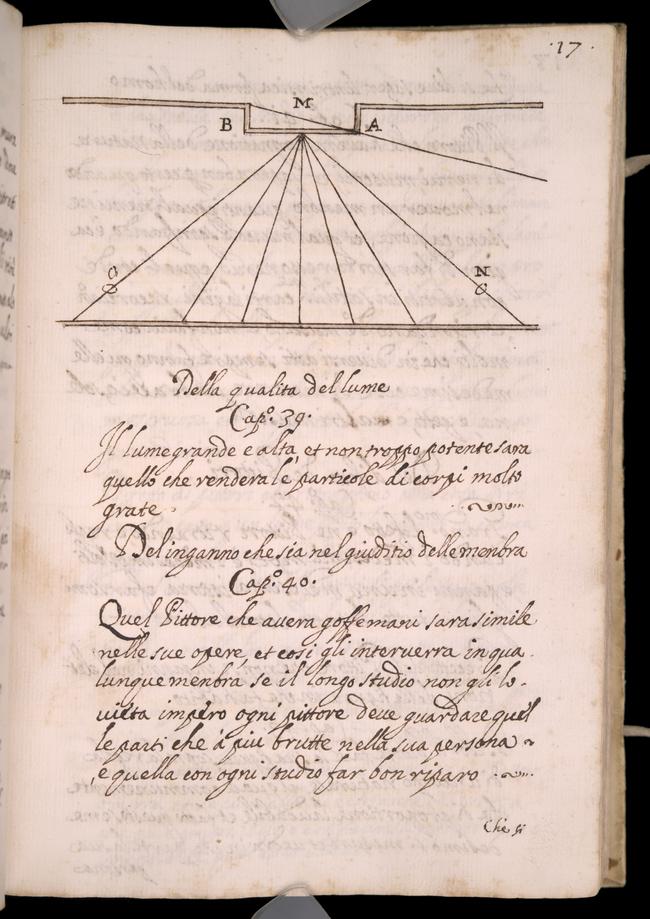 .17.
M
B A
N
Della qualita del lume
Cap.º 39.
Il lume grande e alta, et non troppo potente sara
quello che rendera le particole di corpi molto
grate.
Del inganno che sia nel giuditio delle menbra
Cap.º 40.
Quel Pittore che avera goffe mani sara simile
nelle sue opere, et cosi gli interverra in qua.
lunque menbra se il longo studio non gli lo.
vieta impero ogni pittore deve guardare quel
le parti che à piu brutte nella sua persona
e quella con ogni studio far bon riparo
Che si